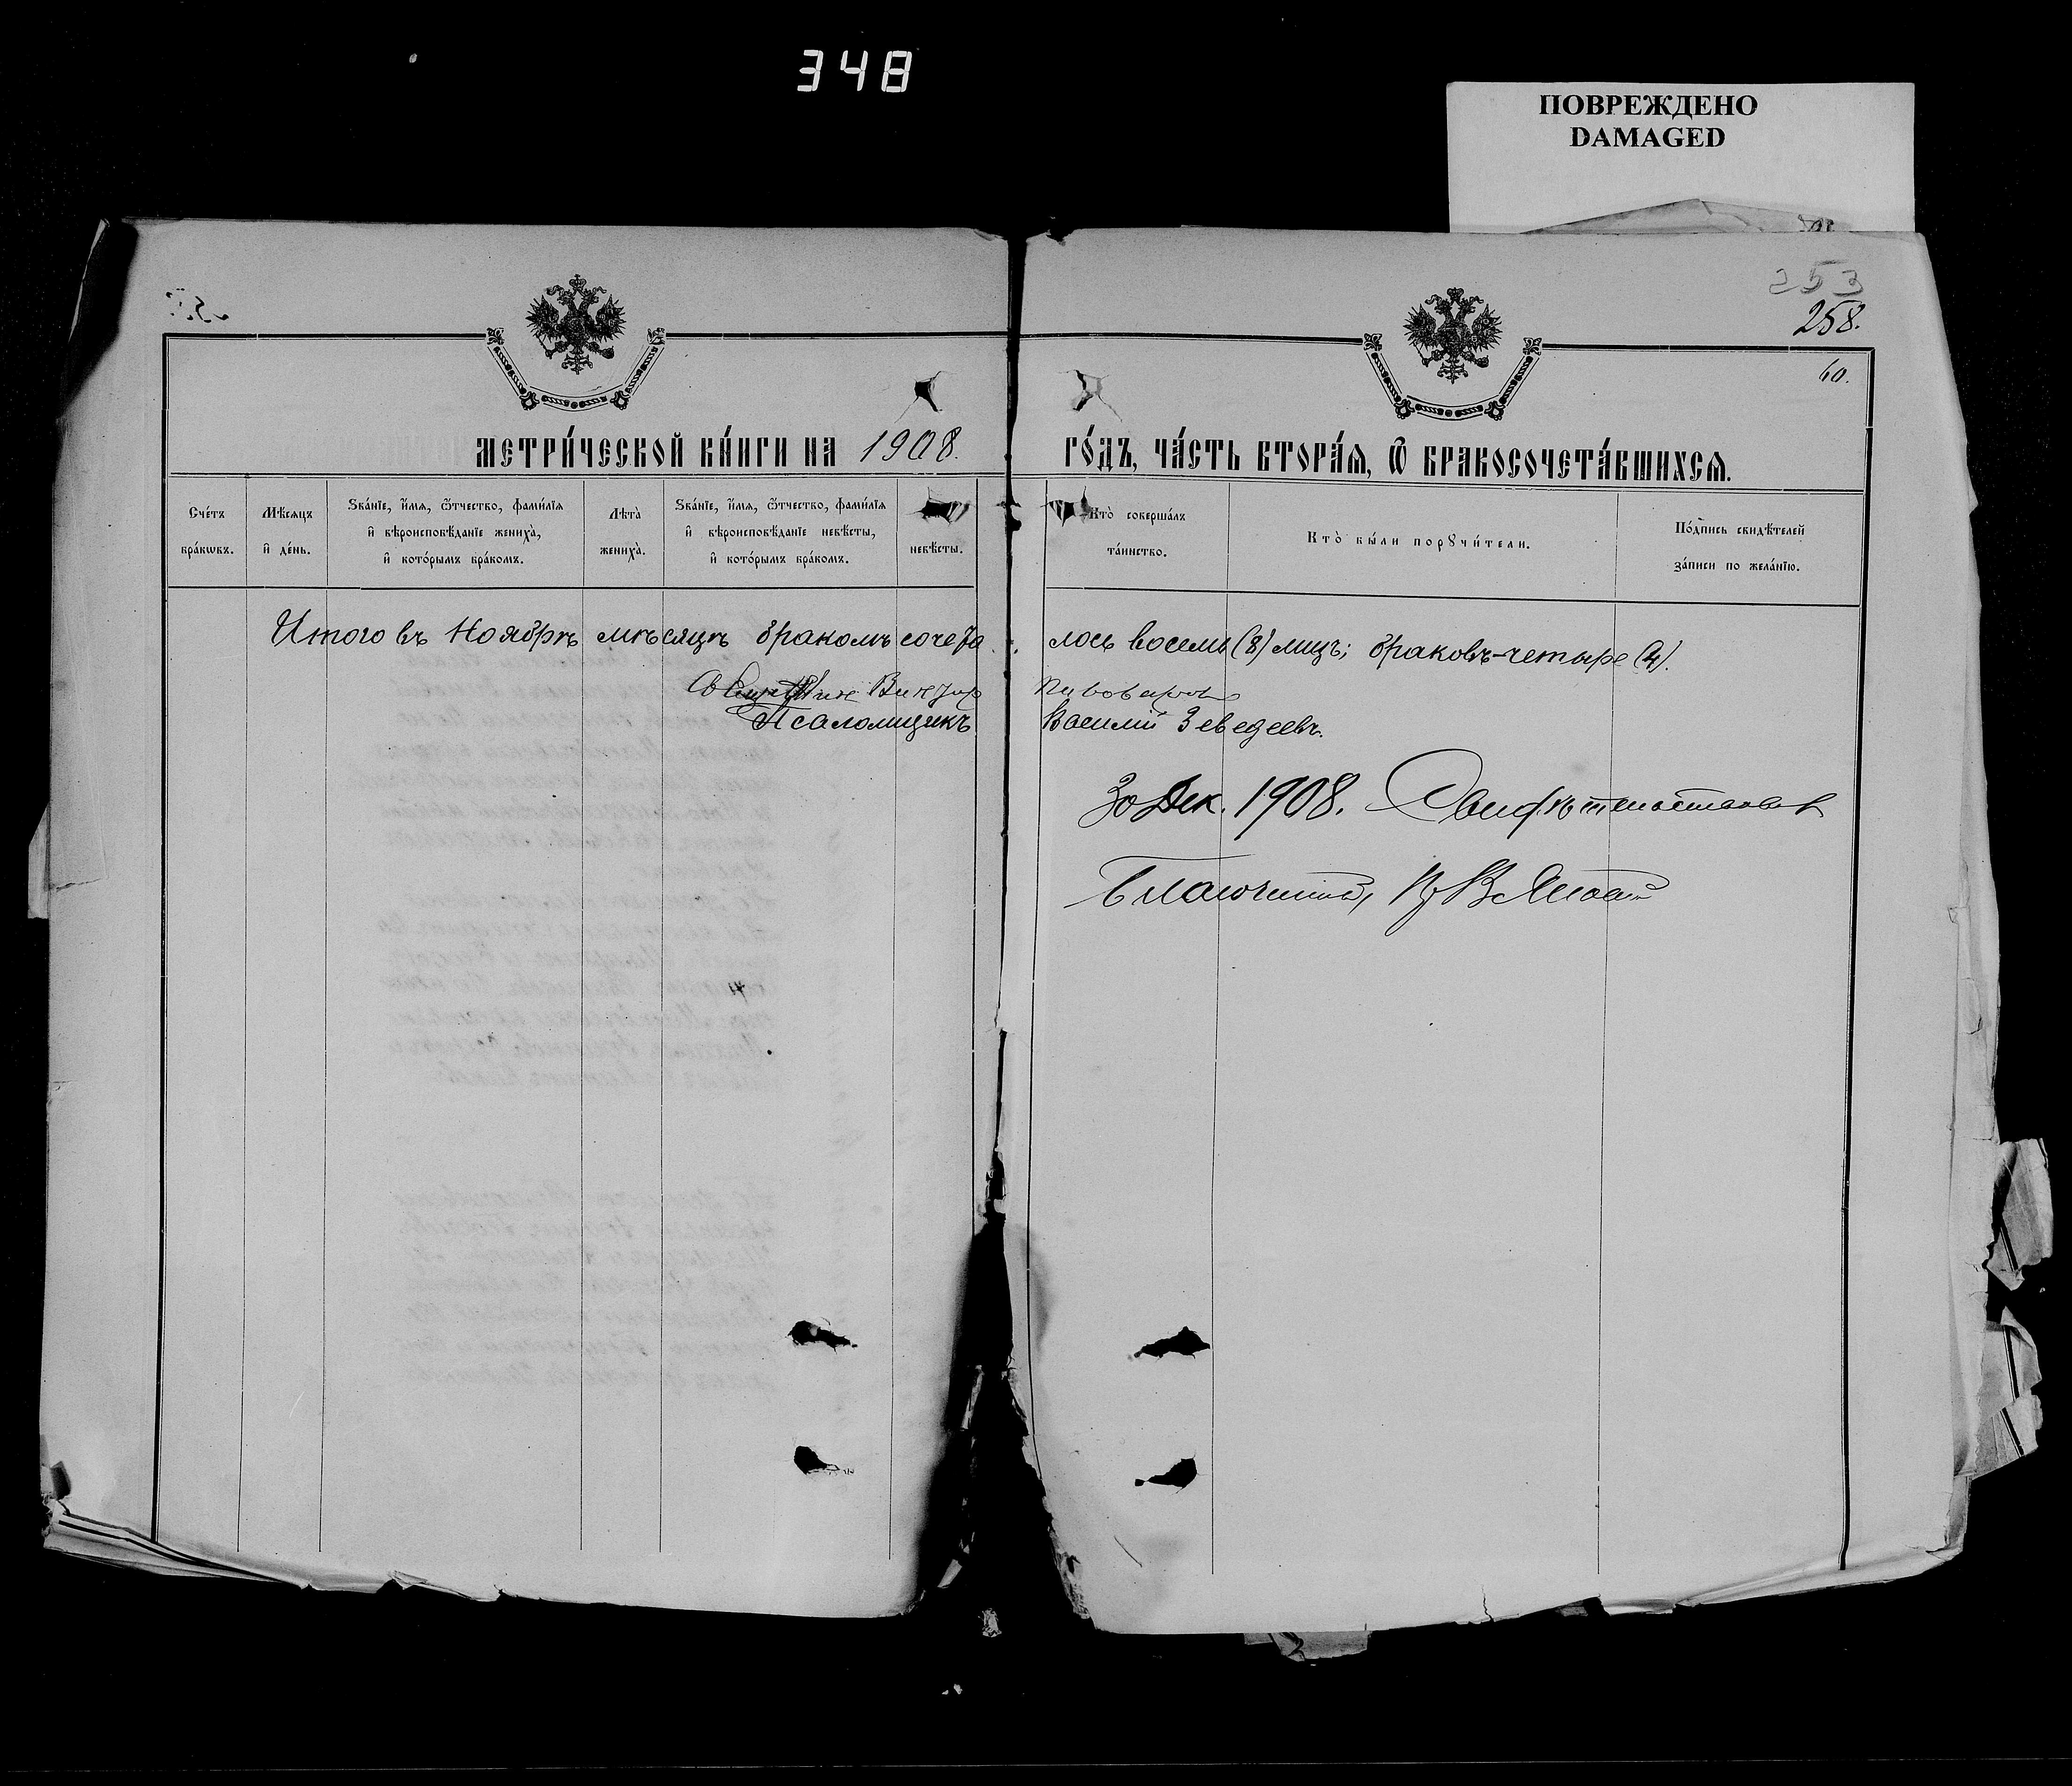 348
ПОВРЕЖДЕНО
DAMAGED
253
258.
60.
МЕТРИ́ЧЕСКОЙ КНИ́ГИ НА 1908. ГО́ДЪ, ЧА́СТЬ ВТОРА́Ѧ, Ѽ БРАКОСОЧЕТА́ВШИХСѦ.
Сче́тъ
бра́кѡвъ.
Мѣ́сѧцъ
и҆ де́нь.
Ѕва́нїе, и҆́мѧ, ѻ҆́тчество, фами́лїѧ
и҆ вѣроисповѣ́данїе жениха̀,
и҆ кото́рымъ бра́комъ.
Лѣ́та̀
жениха̀.
Ѕва́нїе, и҆́мѧ, ѻ҆́тчество, фами́лїѧ
и҆ вѣроисповѣ́данїе невѣ́сты,
и҆ кото́рымъ бра́комъ.
невѣ́сты.
Кто̀ соверша́лъ
та́инство.
Кто̀ бы́ли порꙋчи́тели.
По́дпись свидѣ́телей
за́писи по жела́нїю.
Итого въ Ноябрѣ мѣсяцѣ бракомъ сочета лось восемь (8) лицъ; браковъ-четыре (4).
Свящ Виктор Пивоваров
Псаломщикъ Василій Зеведеевъ.
30 Дек. 1908. Свидѣтельствовал
Благочинный,